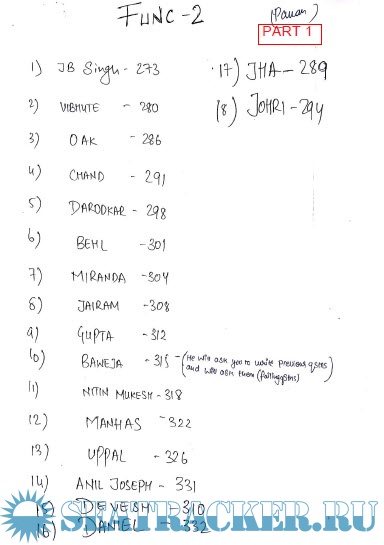 FUNC - 2
(Pawan)
PART 1
1) JB Singh - 273
2) VIBHUTE - 280
3) OAK - 286
4) CHAND - 291
5) DARODKAR - 298
6) BEHL - 301
7) MIRANDA - 304
8) JAIRAM - 308
9) GUPTA - 312
10) BAWEJA - 315 - (He will ask you to write previous qstns
and will ask them (failing qstns)
11) NITIN MUKESH - 318
12) MANHAS - 322
13) UPPAL - 326
14) ANIL JOSEPH - 331
15) DEVESH - 310
16) DANIEL - 332
17) JHA - 289
18) JOHRI - 294
SEATRACKER.RU